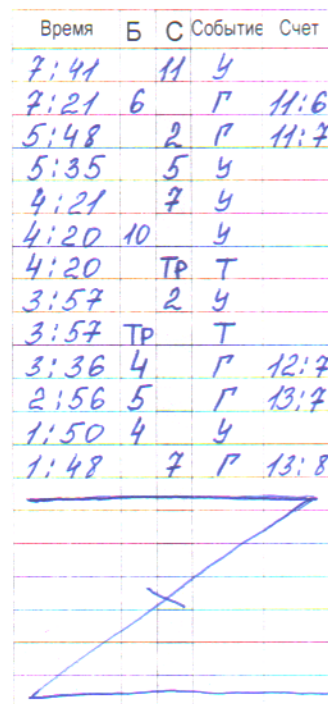 Время Б С Событие Счет
7:41 11 У
7:21 6 Г 11:6
5:48 2 Г 11:7
5:35 5 У
4:21 7 У
4:20 10 У
4:20 ТР Т
3:57 2 У
3:57 ТР Т
3:36 4 Г 12:7
2:56 5 Г 13:7
1:50 4 У
1:48 7 Г 13:8